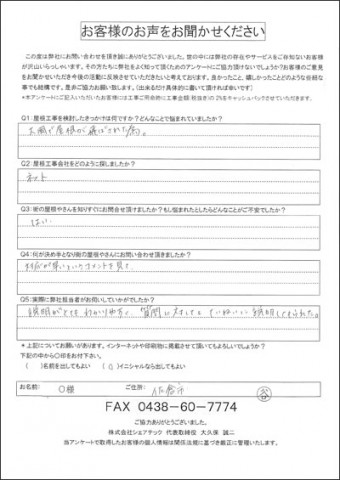 お客様のお声をお聞かせください
この度は弊社にお問い合わせを頂き誠にありがとうございました。世の中には弊社の存在やサービスをご存知ないお客様
が沢山いらっしゃいます。その方たちに弊社をよく知って頂くためのアンケートにご協力頂けないでしょうか?お客様のご意見
をお聞かせいただき今後の活動に反映させていただきたいと考えております。良かったこと、嬉しかったことどのような些細な
事でも結構です。是非ご協力お願い致します。(出来るだけ具体的に書いて頂ければ幸いです)
*本アンケートにご記入いただいたお客様には工事ご用命時に工事金額(税抜き)の2%をキャッシュバックさせていただきます。
Q1:屋根工事を検討したきっかけは何ですか?どんなことで悩まれていましたか?
台風で屋根が飛ばされた為。
Q2:屋根工事会社をどのように探しましたか?
ネット
Q3:街の屋根やさんを知りすぐにお問合せ頂けましたか?もし悩まれたとしたらどんなことがご不安でしたか?
はい。
Q4:何が決め手となり街の屋根やさんにお問い合わせ頂きましたか?
対応が早いというコメントを見て。
Q5:実際に弊社担当者がお伺いしていかがでしたか?
説明がとてもわかりやすく、質問に対してもていねいに説明してくれた。
*上記についてお願いがあります。インターネットや印刷物に掲載させて頂いてもよろしいでしょうか?
下記の中から〇印をお付下さい。
( )名前を出してもよい ( O )イニシャルなら出してもよい
お名前: O様 ご住所: 佐倉市
FAX 0438-60-7774
ご協力ありがとうございました。
株式会社シェアテック 代表取締役 大久保 誠二
当アンケートで取得したお客様の個人情報は関係法規に基づき厳正に管理いたします。